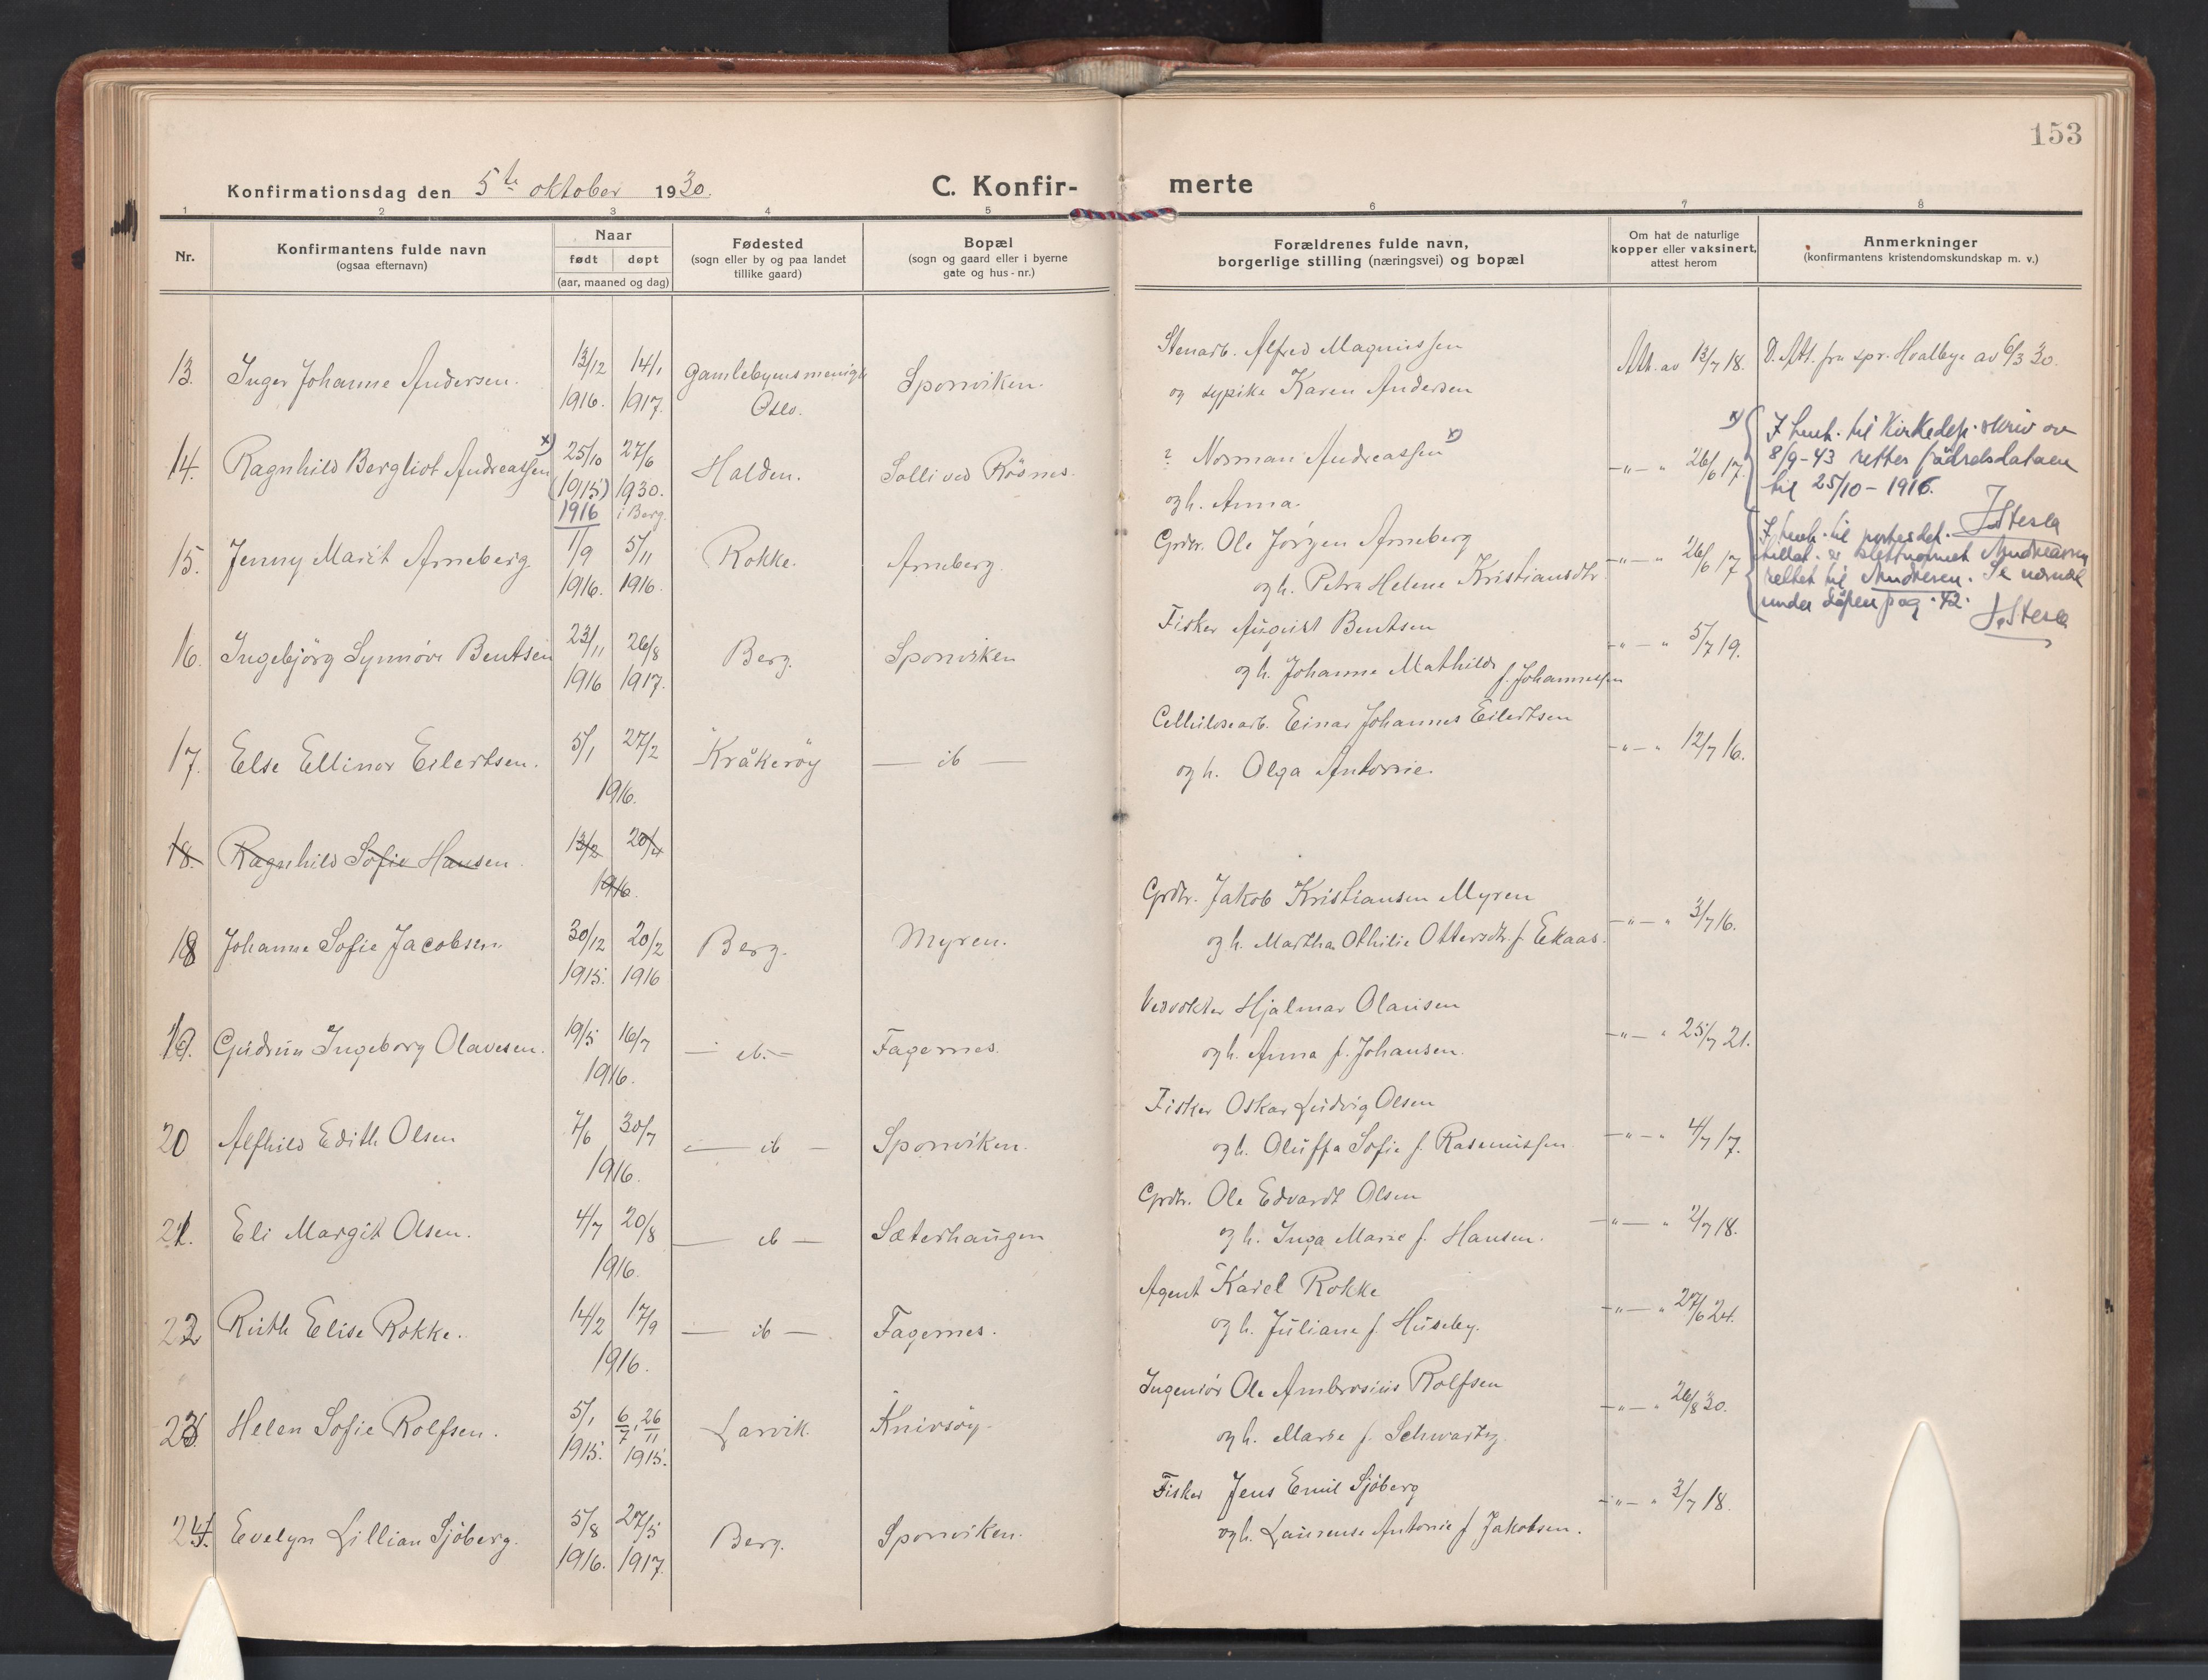 153
Konfirmationsdag den 5te oktober 1930.
C. Konfir- merte
1 2 3 4 5 6 7 8
Nr.
Konfirmantens fulde navn
(ogsaa efternavn)
Naar
født døpt
(aar, maaned og dag)
Fødested
(sogn eller by og paa landet
tillike gaard)
Bopæl
(sogn og gaard eller i byerne
gate og hus-nr.)
Forældrenes fulde navn,
borgerlige stilling (næringsvei) og bopæl
Om hat de naturlige
kopper eller vaksinert,
attest herom
Anmerkninger
(konfirmantens kristendomskundskap m. v.)
13. Inger Johanne Andersen. 13/12 1916. 14/1 1917. Gamlebyens menigh. Oslo. Sponviken.
Stenarb. Alfred Magnussen
og sypike Karen Andersen
Att. av 13/7 18. D. Att. fra spr. Hvalbye av 6/3 30.
14. Ragnhild Bergliot Andreassen x) 25/10 (1915) 1916 27/6 1930. i Berg. Halden. Solli ved Rösnes.
? Norman Andreassen x)
og h. Anna.
-"- " 26/6 17.
x) I henh. til Kirkedep. skriv av
8/9-43 rettes fødselsdataen
til 25/10-1916.
JStesa
I henh. til
er slektsnavnet Andreassen
rettet til Andresen. Se
under dåpen pag. 42.
JStesa
15. Jenny Marit Arneberg. 1/9 1916. 5/11 1916. Rokke. Arneberg.
Grdbr. Ole Jörgen Arneberg
og h. Petra Helene Kristiansdtr.
-"- " 26/6 17
16. Ingebjörg Synnöve Bentsen 23/11 1916 26/8 1917. Berg. Sponviken
Fisker August Bentsen
og h. Johanne Mathilde f. Johannessen
-"- " 5/7 19.
17. Else Ellinor Eilertsen. 5/1 27/2 1916. Kråkeröy — ib —
Cellulosearb. Einar Johannes Eilertsen
og h. Olga Antonie.
-"- " 12/7 16.
18. Ragnhild Sofie Hansen. 13/2 20/4 1916.
18 Johanne Sofie Jacobsen. 30/12 1915. 20/2 1916 Berg. Myren.
Grdbr. Jakob Kristiansen Myren
og h. Martha Othilie Ottersdtr. f. Ekaas.
-"- " 3/7 16.
19. Gudrun Ingeborg Olavesen. 19/5 16/7 1916. — ib. — Fagernes.
Vedvokter Hjalmar Olausen
og h. Anna f. Johansen.
-"- " 25/7 21.
20 Alfhild Edith Olsen 7/6 30/7 1916. — ib — Sponviken.
Fisker Oskar Ludvig Olsen
og h. Oluffa Sofie f. Rasmussen
-"- " 4/7 17.
21. Eli Margit Olsen. 4/7 20/8 1916. — ib — Sæterhaugen
Grdbr. Ole Edvardt Olsen
og h. Inga Marie f. Hansen.
-"- " 2/7 18.
22 Ruth Elise Rokke. 14/2 17/9 1916. — ib — Fagernes.
Agent Karel Rokke
og h. Juliane f. Huseby.
-"- " 27/6 24.
23. Helen Sofie Rolfsen. 5/1 1915. 6/7, 26/11 1915. Larvik. Knivsöy.
Ingeniör Ole Ambrosius Rolfsen
og h. Marie f. Schwartz.
-"- " 26/8 30.
24. Evelyn Lillian Sjöberg. 5/8 1916. 27/5 1917. Berg. Sponviken.
Fisker Jens Emil Sjöberg
og h. Laurense Antonie f. Jakobsen.
-"- " 3/7 18.